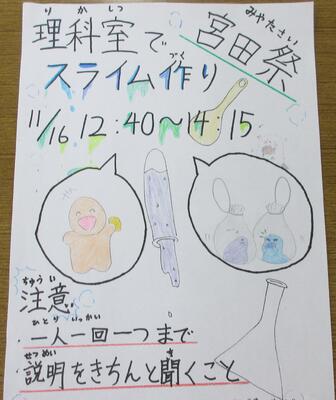 りかしつ
理科室で
みやたさい
宮田祭
づく
スライム作り
11/16 12:40〜14:15
ちゅうい
注意
ひとり いっかい
・一人一回一つまで
せつめい き
・説明をきちんと聞くこと